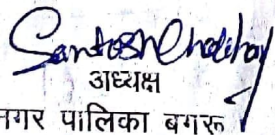 Santosh Choudhary
अध्यक्ष
नगर पालिका बगरू